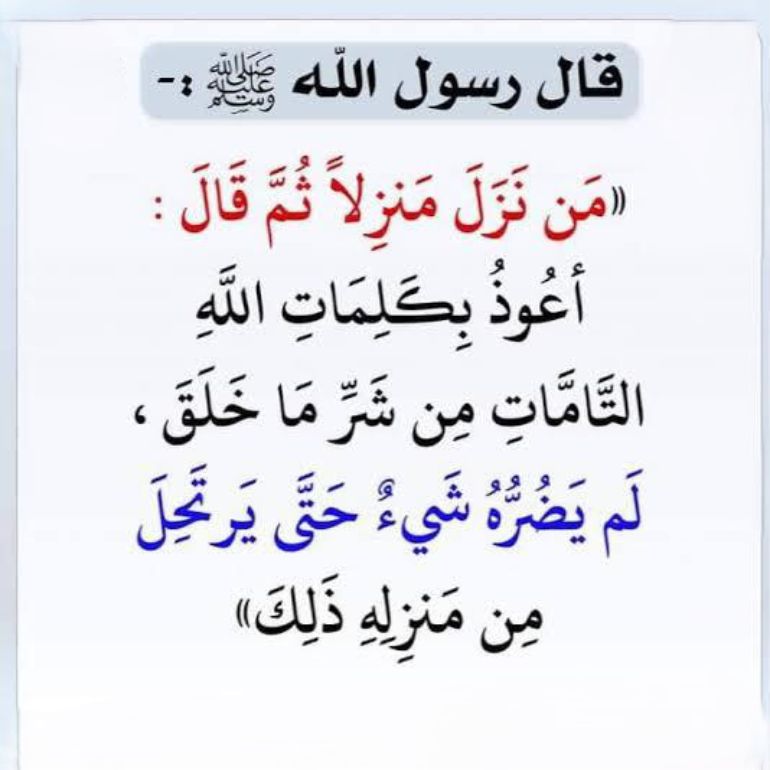 قال رسول الله ﷺ :-
«مَن نَزَلَ مَنزِلاً ثُمَّ قَالَ :
أعُوذُ بِكَلِمَاتِ اللَّهِ
التَّامَّاتِ مِن شَرِّ مَا خَلَقَ ،
لَم يَضُرُّهُ شَيءٌ حَتَّى يَرتَحِلَ
مِن مَنزِلِهِ ذَلِكَ»